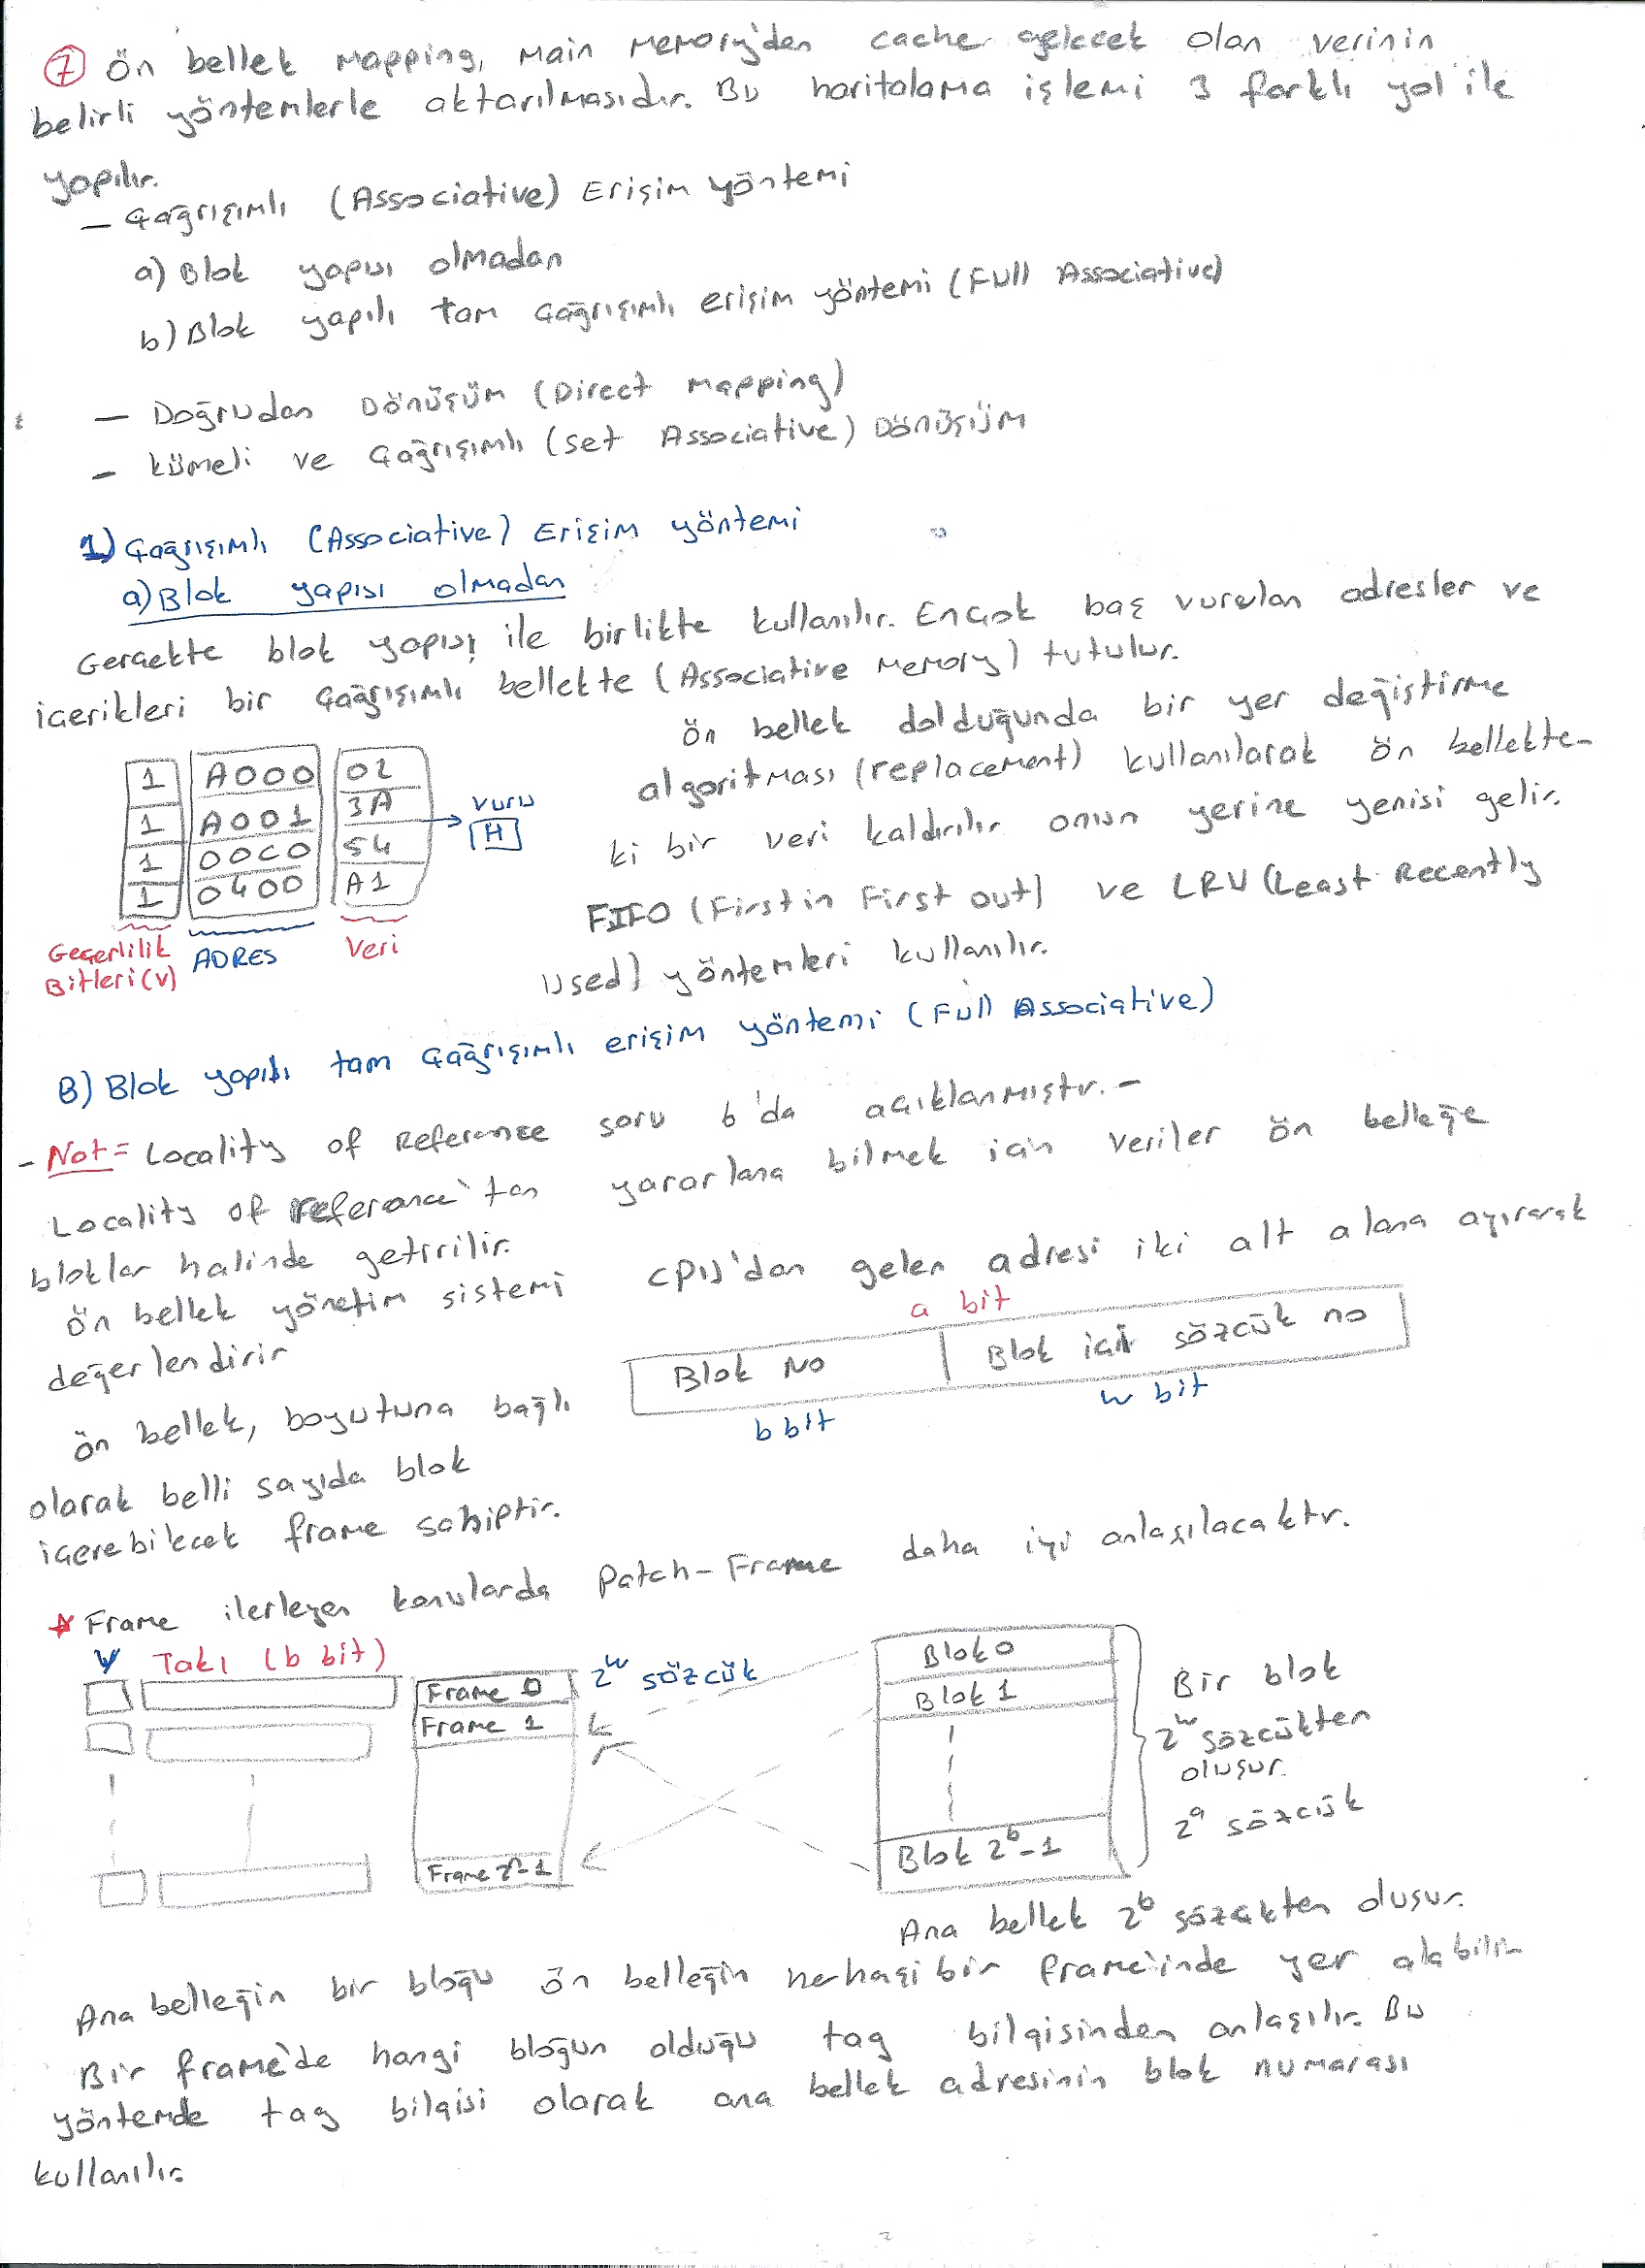 7 Ön bellek mapping, main memory'den cache gelecek olan verinin
belirli yöntemlerle aktarılmasıdır. Bu haritalama işlemi 3 farklı yol ile
yapılır.
- Çağrışımlı (Associative) Erişim yöntemi
a) Blok yapısı olmadan
b) Blok yapılı tam çağrışımlı erişim yöntemi (Full Associative)
- Doğrudan Dönüşüm (Direct mapping)
- Kümeli ve Çağrışımlı (set Associative) Dönüşüm
1) Çağrışımlı (Associative) Erişim yöntemi
a) Blok yapısı olmadan
Gerçekte blok yapısı ile birlikte kullanılır. En çok baş vurulan adresler ve
içerikleri bir çağrışımlı bellekte (Associative Memory) tutulur.
Ön bellek dolduğunda bir yer değiştirme
algoritması (replacement) kullanılarak ön bellekte-
ki bir veri kaldırılır onun yerine yenisi gelir.
FIFO (First in First out) ve LRU (Least Recently
Used) yöntemleri kullanılır.
1 A000 02
1 A001 3A
1 00C0 54
1 0400 A1
vuru
H
Geçerlilik
Bitleri (v)
ADRES
Veri
B) Blok yapılı tam çağrışımlı erişim yöntemi (Full Associative)
- Not = Locality of Reference soru 6'da açıklanmıştır. -
Locality of reference'ten yararlana bilmek için veriler ön belleğe
bloklar halinde getirilir.
Ön bellek yönetim sistemi CPU'dan gelen adresi iki alt alana ayırarak
değerlendirir
a bit
Blok No
Blok içi sözcük no
b bit
w bit
Ön bellek, boyutuna bağlı
olarak belli sayıda blok
içerebilecek frame sahiptir.
* Frame ilerleyen konularda Patch-Frame daha iyi anlaşılacaktır.
V Takı (b bit)
Frame 0
2^w sözcük
Frame 1
Blok 0
Blok 1
Blok 2^b-1
Bir blok
2^w sözcükten
oluşur.
2^a sözcük
Ana bellek 2^b sözcükten oluşur.
Ana belleğin bir bloğu ön belleğin herhagi bir frame'inde yer alabilir
Bir frame'de hangi bloğun olduğu tag bilgisinden anlaşılır. Bu
yöntemde tag bilgisi olarak ana bellek adresinin blok numarası
kullanılır.